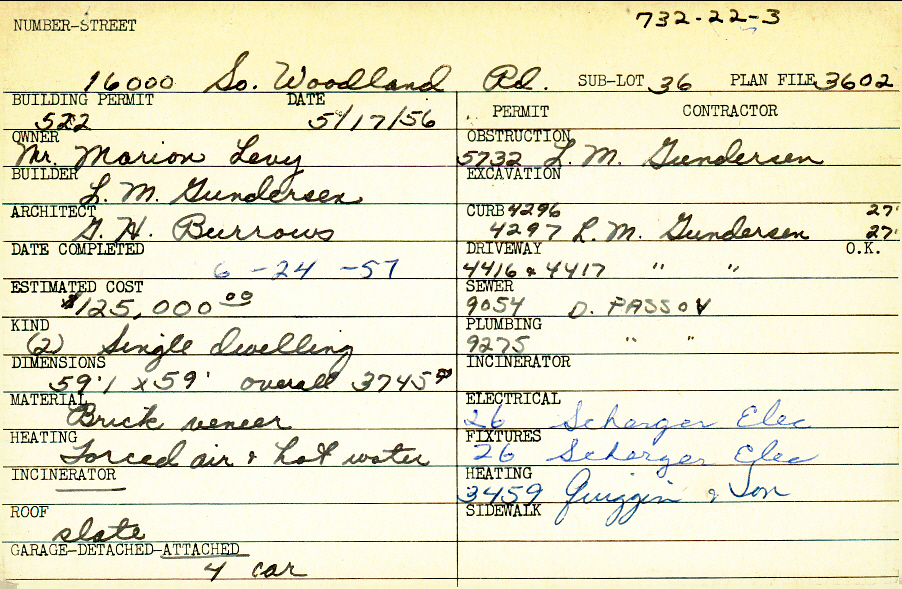 732-22-3
NUMBER-STREET
16000 So. Woodland Rd. SUB-LOT 36 PLAN FILE 3602
BUILDING PERMIT DATE
522 5/17/56
OWNER
Mr. Marion Levy
BUILDER
L. M. Gundersen
ARCHITECT
G. H. Burrows
DATE COMPLETED
6-24-57
ESTIMATED COST
$125,000.00
KIND
(2) Single dwelling
DIMENSIONS
59'1 x 59' overall 3745
MATERIAL
Brick veneer
HEATING
Forced air & hot water
INCINERATOR
ROOF
slate
GARAGE-DETACHED-ATTACHED
4 car
PERMIT CONTRACTOR
OBSTRUCTION
5732 L. M. Gundersen
EXCAVATION
CURB 4296 27'
4297 L. M. Gundersen 27'
DRIVEWAY O.K.
4416 & 4417 " "
SEWER
9054 D. PASSOV
PLUMBING
9275 " "
INCINERATOR
ELECTRICAL
26 Scharger Elec
FIXTURES
26 Scharger Elec
HEATING
3459 Quiggin & Son
SIDEWALK